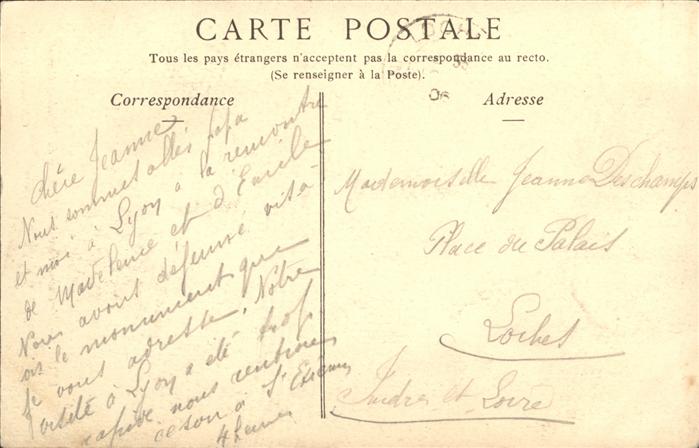 CARTE POSTALE
Tous les pays étrangers n'acceptent pas la correspondance au recto.
(Se renseigner à la Poste).
Correspondance
Chère Jeanne
Nous sommes allés papa
et moi à Lyon à la rencontre
de Madeleine et d'Emile
Nous avons déjeuné visi-
té le monument que
je vous adresse. Notre
visite à Lyon a été trop
rapide nous rentrons
ce soir à St Etienne
Adresse
Mademoiselle Jeanne Deschamps
Place du Palais
Loches
Indre et Loire